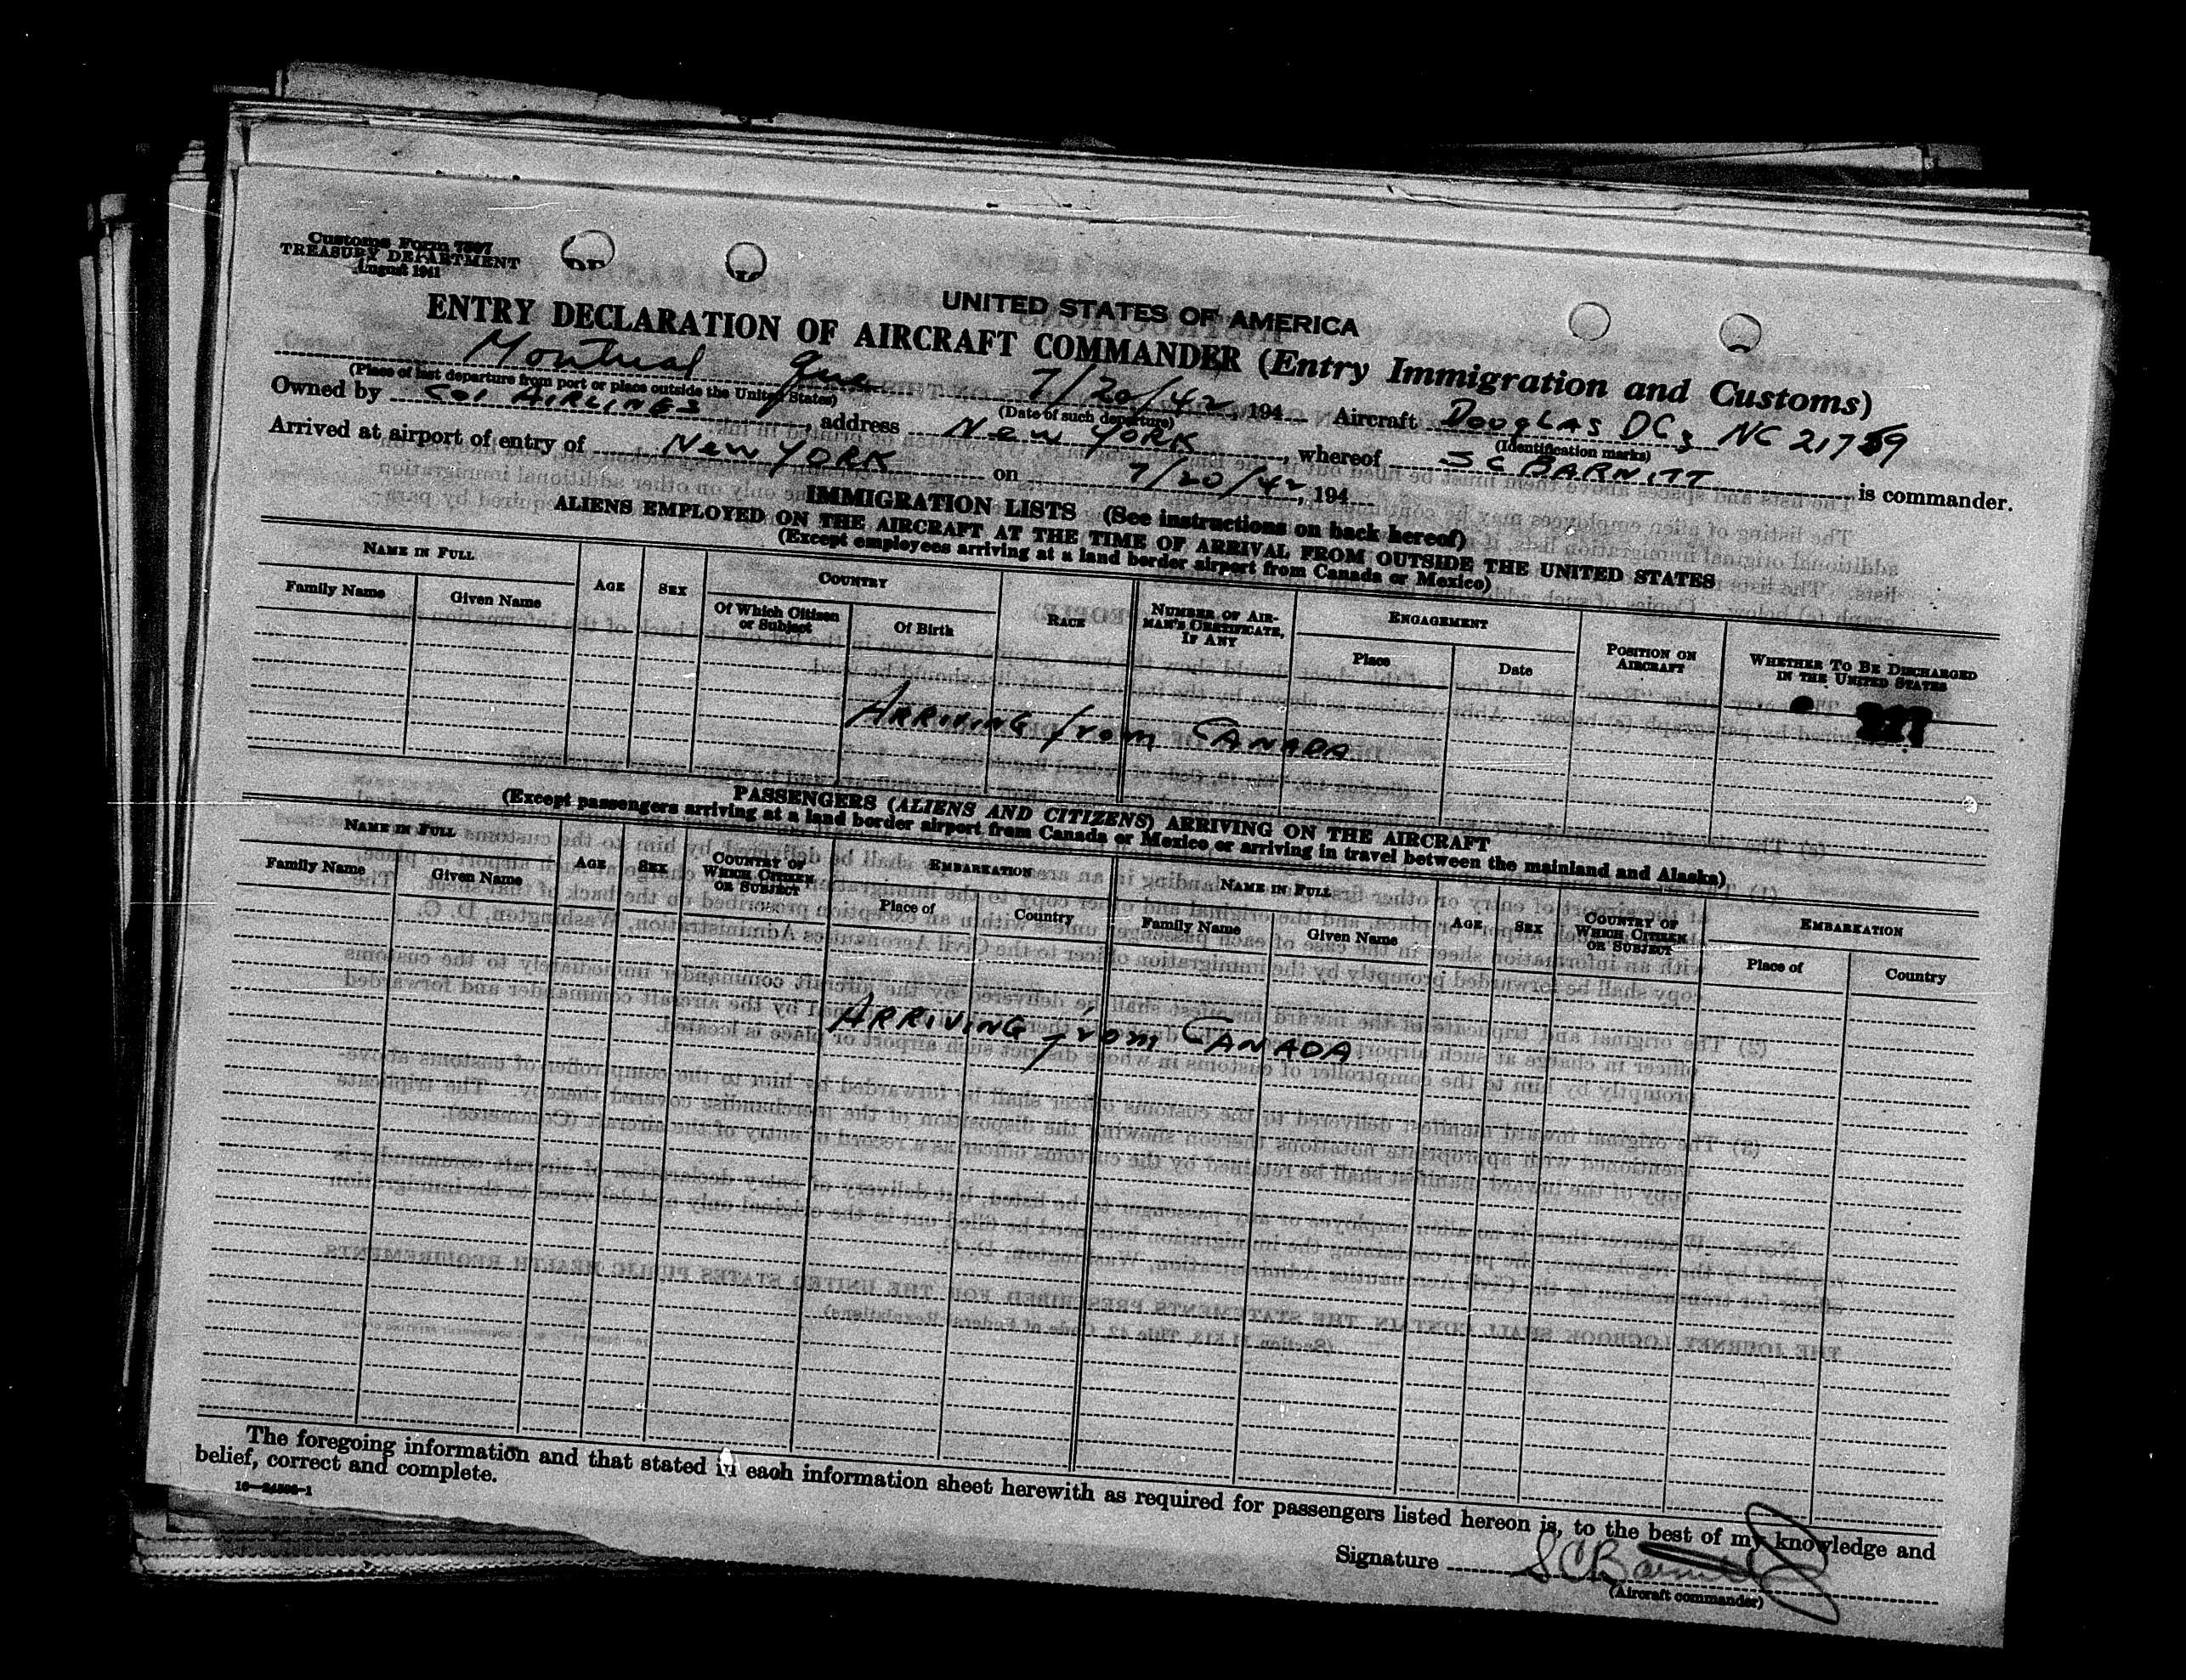 Customs Form 7507
TREASURY DEPARTMENT
August 1941
UNITED STATES OF AMERICA
ENTRY DECLARATION OF AIRCRAFT COMMANDER (Entry Immigration and Customs)
Montreal Que 7/20/42, 194 Aircraft DOUGLAS DC3 NC 21759
(Place of last departure from port or place outside the United States) (Date of such departure) (Identification marks)
Owned by Col AIRLINES, address New YORK, whereof S C BARNITT is commander.
Arrived at airport of entry of New YORK on 7/20/42, 194
IMMIGRATION LISTS (See instructions on back hereof)
ALIENS EMPLOYED ON THE AIRCRAFT AT THE TIME OF ARRIVAL FROM OUTSIDE THE UNITED STATES
(Except employees arriving at a land border airport from Canada or Mexico)
NAME IN FULL AGE SEX COUNTRY RACE NUMBER OF AIRMAN'S CERTIFICATE, IF ANY ENGAGEMENT POSITION ON AIRCRAFT WHETHER TO BE DISCHARGED IN THE UNITED STATES
Family Name Given Name Of Which Citizen or Subject Of Birth Place Date
ARRIVING from CANADA
PASSENGERS (ALIENS AND CITIZENS) ARRIVING ON THE AIRCRAFT
(Except passengers arriving at a land border airport from Canada or Mexico or arriving in travel between the mainland and Alaska)
NAME IN FULL AGE SEX COUNTRY OF WHICH CITIZEN OR SUBJECT EMBARKATION NAME IN FULL AGE SEX COUNTRY OF WHICH CITIZEN OR SUBJECT EMBARKATION
Family Name Given Name Place of Country Family Name Given Name Place of Country
ARRIVING from CANADA
The foregoing information and that stated in each information sheet herewith as required for passengers listed hereon is, to the best of my knowledge and
belief, correct and complete.
Signature S C Barnitt
(Aircraft commander)